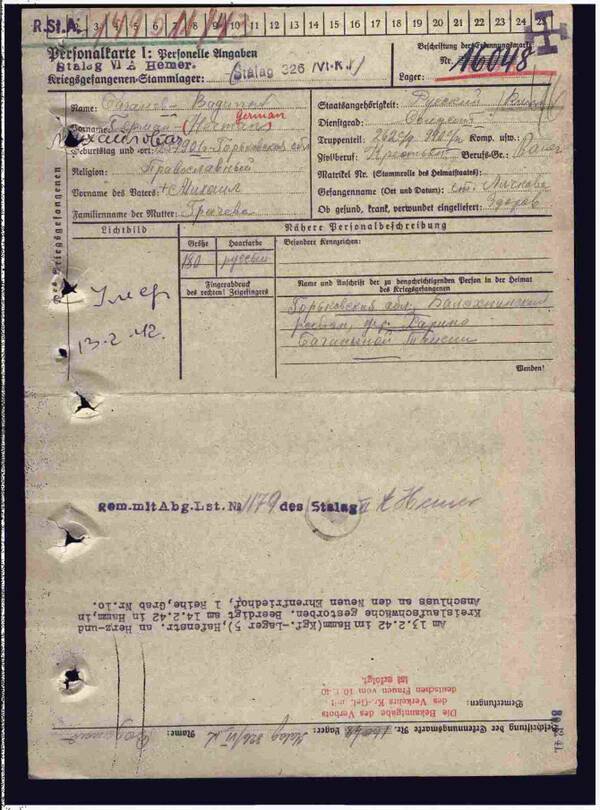 R.St.A. 3 4 5 6 7 8 9 10 11 12 13 14 15 16 17 18 19 20 21 22 23 24 25
Personalkarte I: Personelle Angaben
Stalag VI A Hemer.
Kriegsgefangenen-Stammlager: Stalag 326 /VI-K/
Beschriftung der Erkennungsmarke
Nr. 16048
Lager:
Des Kriegsgefangenen
Name:
Vorname: Герман German
Михайлович
Geburtstag und -ort: 1906 Горьковской обл
Religion: Православный
Vorname des Vaters: Михаил
Familienname der Mutter: Грачева
Staatsangehörigkeit: Русский
Dienstgrad:
Truppenteil: Komp. usw.:
Zivilberuf: Berufs-Gr.: Bauer
Matrikel Nr. (Stammrolle des Heimatstaates):
Gefangenname (Ort und Datum): ст. Лычково
Ob gesund, krank, verwundet eingeliefert: Здоров
Lichtbild
Nähere Personalbeschreibung
Größe Haarfarbe Besondere Kennzeichen:
180 русый
Fingerabdruck
des rechten! Zeigefingers
Name und Anschrift der zu benachrichtigenden Person in der Heimat
des Kriegsgefangenen
Горьковская обл. Балахнинский
район, дер.
Умер
13-2-42.
Wenden!
gem.mit Abg.Lst.№ 1179 des Stalag VI A Hemer
Am 13.2.42 im Hamm (Kgf.-Lager 5),Hafenstr. an Herz-und-
Kreislaufschwäche gestorben. Beerdigt am 14.2.42 in Hamm,in
Anschluss an den Neuen Ehrenfriedhof, 1 Reihe,Grab Nr.10.
Bemerkungen:
Die Bekanntgabe des Verbots
des Verkehrs Kr.-Gef. mit
deutschen Frauen vom 10.1.40
ist erfolgt.
Beschriftung der Erkennungsmarke Nr. 16048 Lager: Stalag 326/VI K Name: